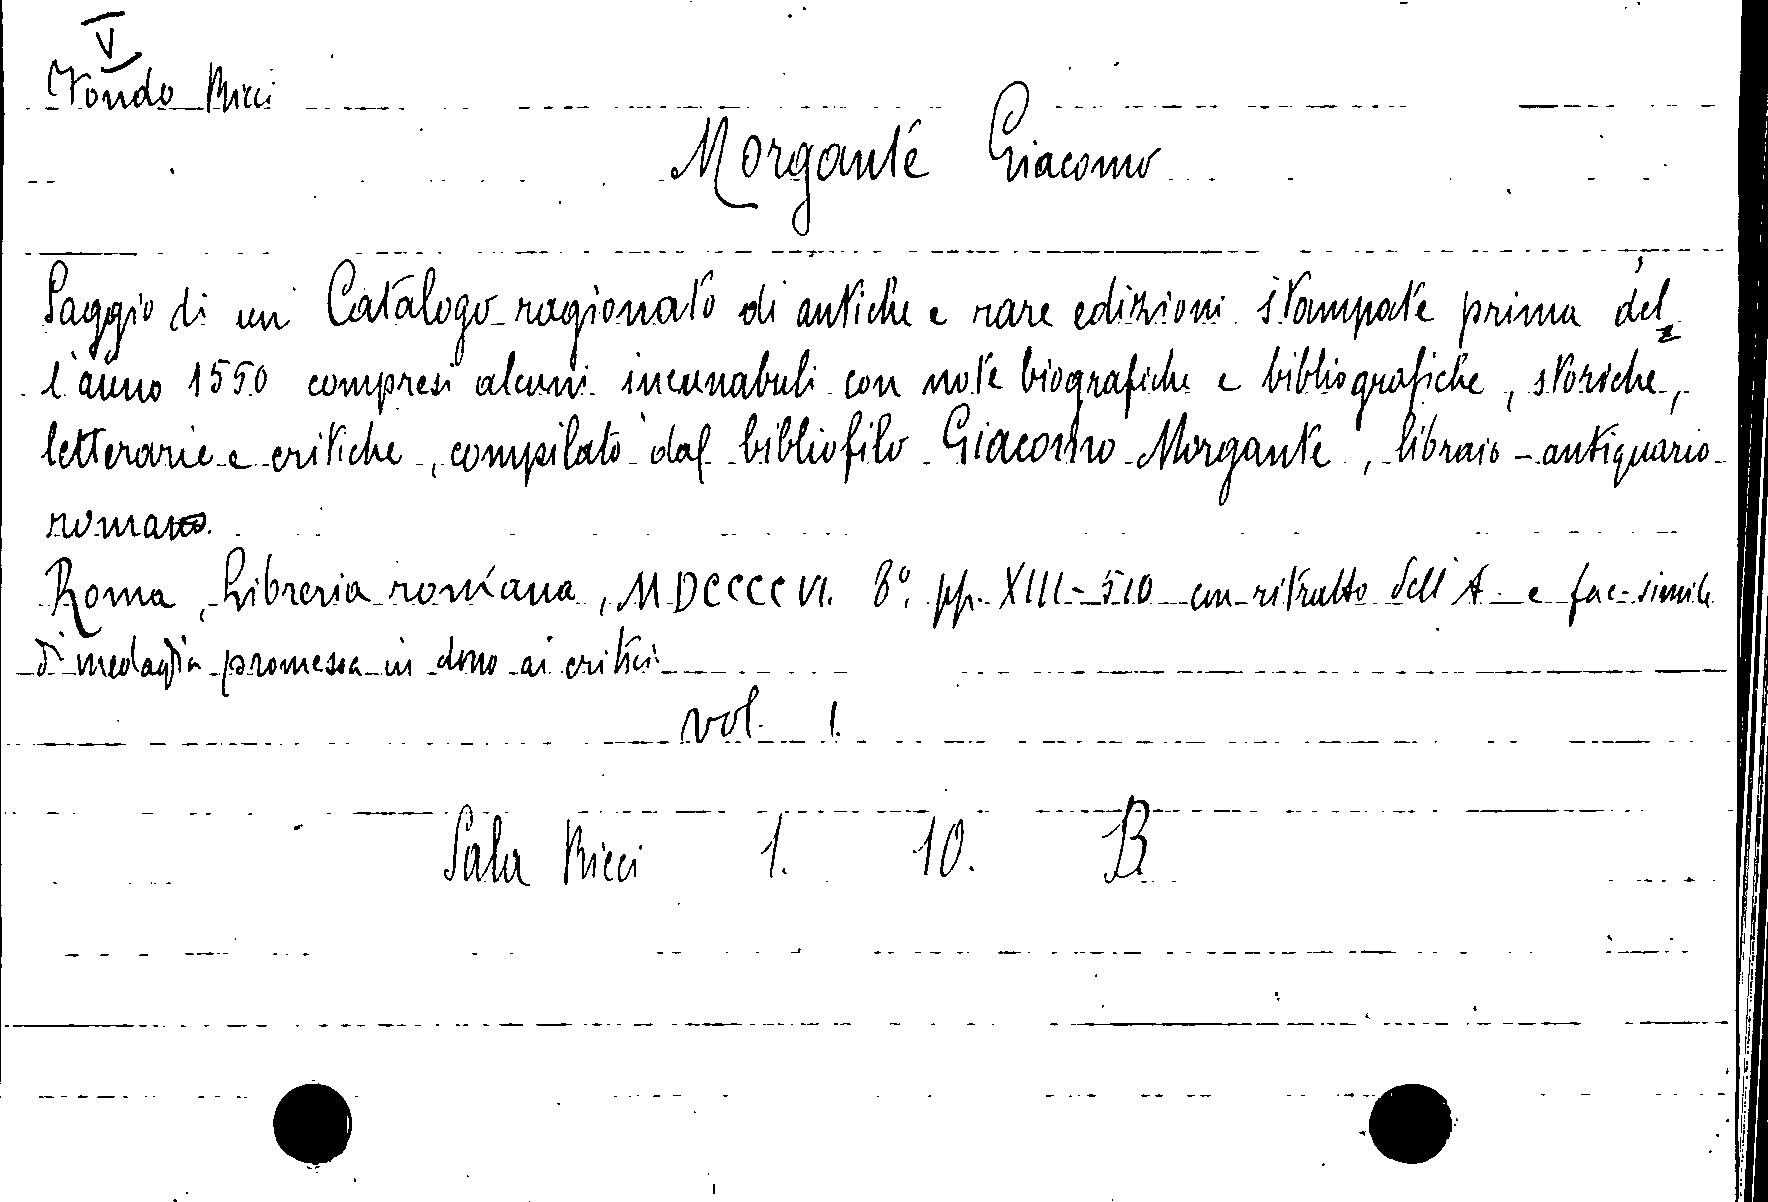 V
Fondo Ricci
Morgante Giacomo
Saggio di un Catalogo ragionato di antiche e rare edizioni stampate prima del=
l'anno 1550 compresi alcuni incunabuli con note biografiche e bibliografiche, storiche,
letterarie e critiche, compilato dal bibliofilo Giacomo Morgante, libraio-antiquario
romano.
Roma, Libreria romana, MDCCCCVI. 8°. pp. XIII-510 con ritratto dell'A. e fac-simile
di medaglia promessa in dono ai critici.
vol. 1.
Sala Ricci 1. 10. B.